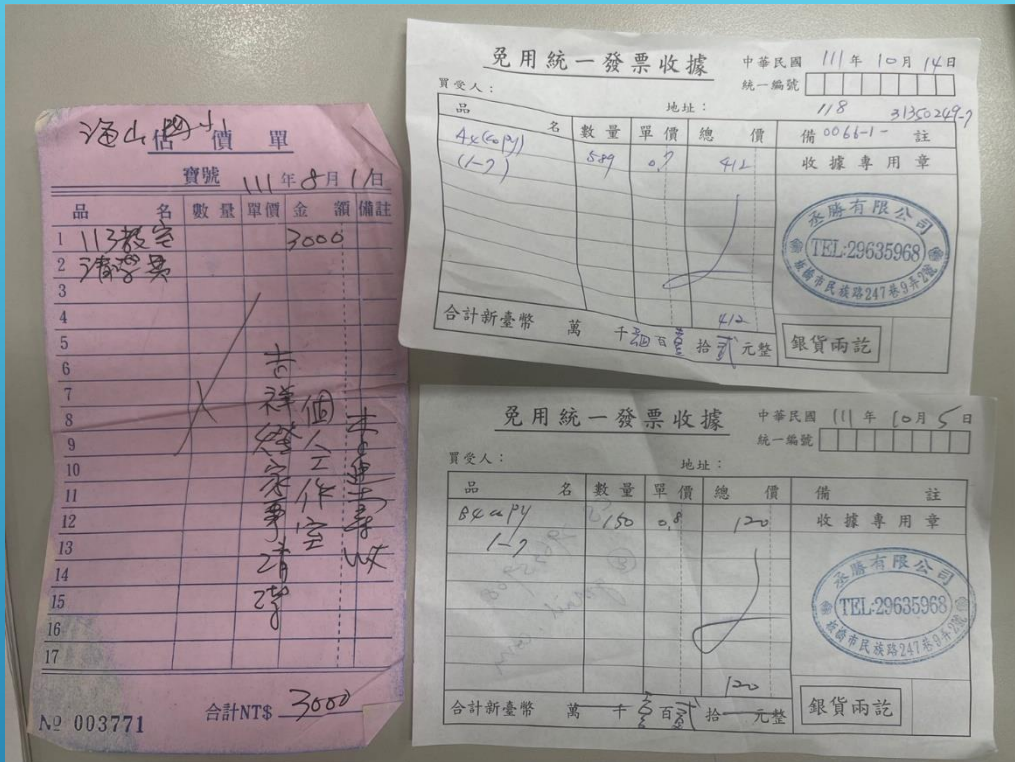 海山國小
估價單
寶號 111年8月11日
品名 數量 單價 金額 備註
1 113教室 3000
2 清潔費
3
4
5
6
7
8
9
10
11
12
13
14
15
16
17
吉祥燈家事清潔
個人工作室
合計NT$ 3000
№ 003771
免用統一發票收據
中華民國 111年10月14日
統一編號
買受人：
地址：
118 31350249-7
品名 數量 單價 總價 備註
0066-1-
A4 copy 589 0.7 412
(1-7)
收據專用章
丞勝有限公司
TEL:29635968
板橋市民族路247巷9弄2號
412
合計新臺幣 萬 千 肆百壹拾貳元整
銀貨兩訖
免用統一發票收據
中華民國 111年10月5日
統一編號
買受人：
地址：
品名 數量 單價 總價 備註
B4 copy 150 0.8 120
1-7
收據專用章
丞勝有限公司
TEL:29635968
板橋市民族路247巷9弄2號
120
合計新臺幣 萬 千 壹百貳拾 元整
銀貨兩訖